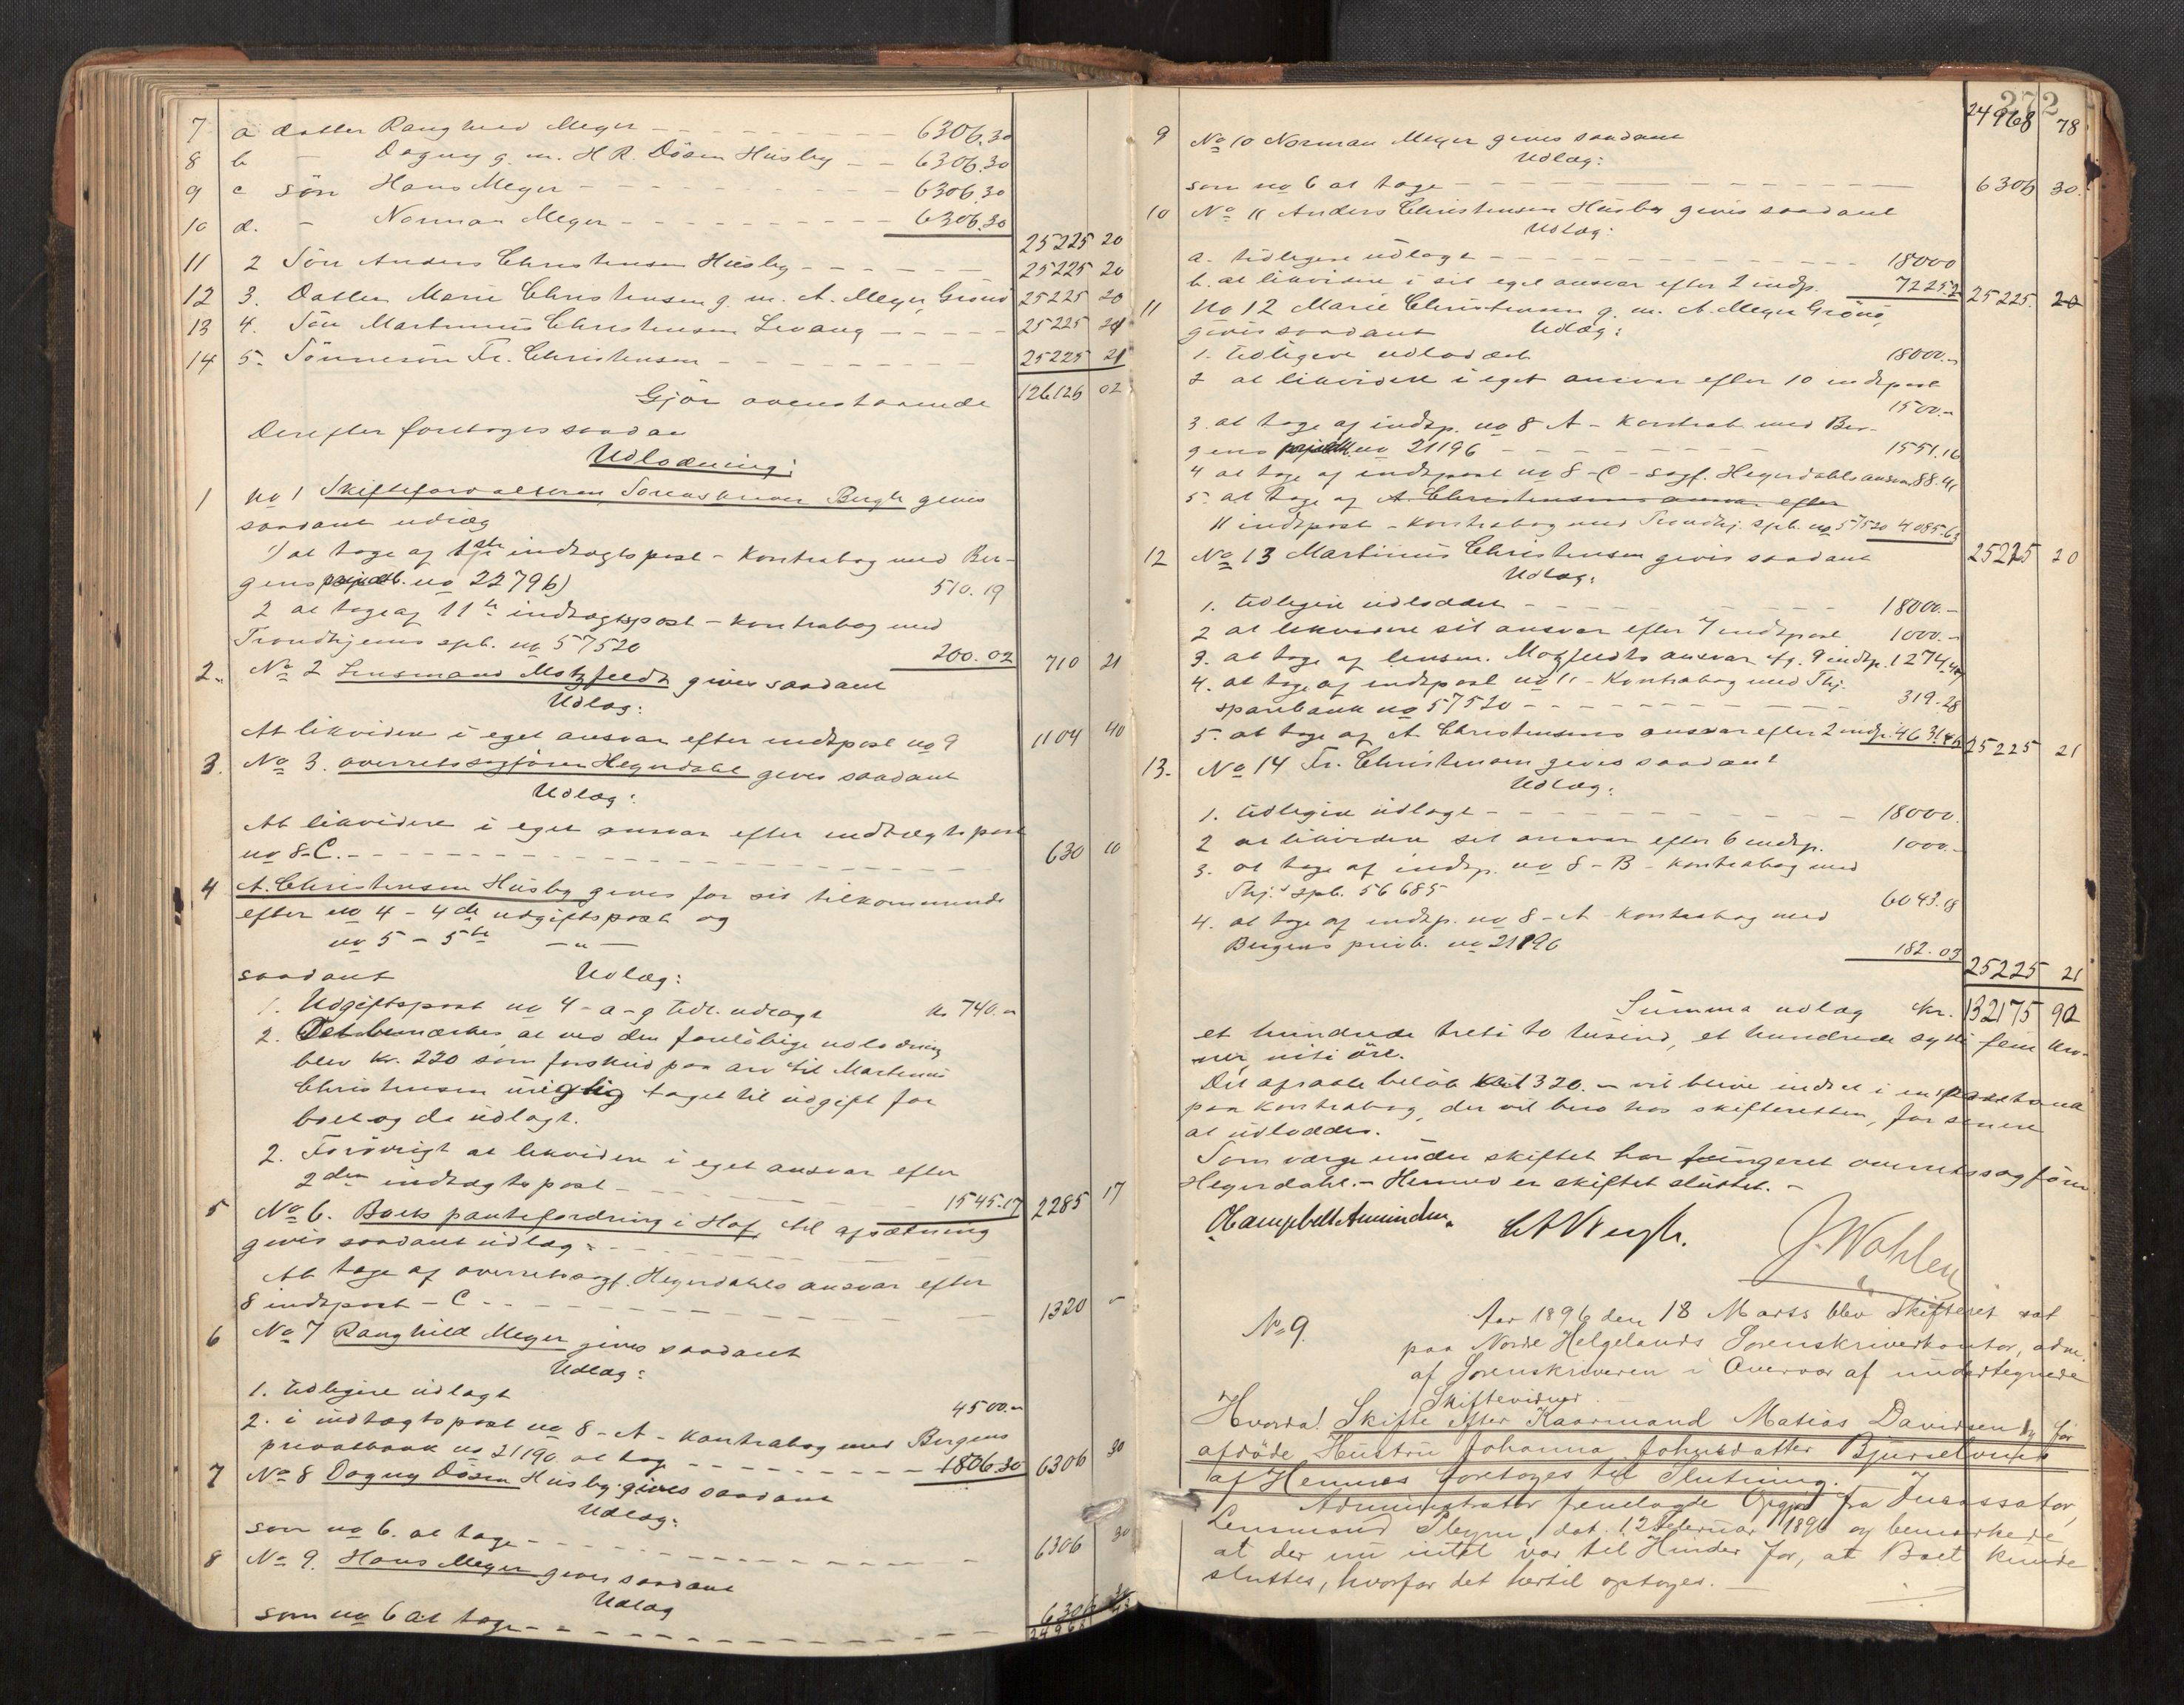 7 a datter Ranghild Meyer - - - 6306.30
8 b - Dagny g. m. H R. Dösen Husby - - 6306.30
9 c sön Hans Meyer - - - 6306.30
10 d. - Norman Meyer - - - 6306.30
25225 20
11 2 Sön Anders Christensen Husby - - - 25225 20
12 3. Datter Marie Christensen g. m. A. Meyer Grönö 25225 20
13 4. Sön Martinus Christensen Levang - - - 25225 21
14 5. Sönnesön Fr. Christensen - - - 25225 21
Gjör ovenstaaende 126126 02
Derefter foretoges saadan
Udlodning:
1 No 1 Skifteforvalteren Sorenskriver Bergh gives
saadant udlæg
1) at tage af 1ste indtægtspost - Kontrabog med Ber-
gens privatb. no 22796) 510.19
2 at tage af 11te indtægtspost - kontrabog med
Trondhjems spb. no 57520 200.02 710 21
2. No 2 Lensmand Motzfeldt gives saadant
Udlæg:
At likvidere i eget ansvar efter indtpost no 9 1104 40
3. No 3. overretssagförer Heyerdahl gives saadant
Udlæg:
At likvidere i eget ansvar efter indtægtspost
no 8-C. - - - 630 10
4 A. Christensen Husby gives for sit tilkommende
efter no 4 - 4de udgiftspost og
no 5 - 5te - " -
saadant Udlæg:
1. Udgiftspost no 4 - a-g tidl. udlagt kr 740.-
2. Det bemærkes, at ved den foreløbige udlodning
blev kr. 220 som forskud paa arv til Martinus
Christensen urigtig taget til udgift for
boet og da udlagt.
2. Forövrigt at likvidere i eget ansvar efter
2den indtægtspost - - - 1545.17 2285 17
5 No 6. Boets pantefordring i Hof til afsætning
gives saadant udlæg: - - -
At tage af overretssagf. Heyerdahls ansvar efter
8 indtpost - C - - - 1320 -
6 No 7 Ranghild Meyer gives saadant
Udlæg:
1. tidligere udlagt 4500.-
2. i indtægtspost no 8 - A - kontrabog med Bergens
privatbank no 21190 at tage - - - 1806.30 6306 30
7 No 8 Dagny Dösen Husby gives saadant
Udlæg:
som no 6. at tage - - - 6306 30
8 No 9. Hans Meyer gives saadant
Udlæg
som no 6 at tage - - - 6306 30
24968
272
24968 78
9 No 10 Norman Meyer gives saadant
Udlæg:
som no 6 at tage - - - 6306 30.
10 No 11 Anders Christensen Husby gives saadant
Udlæg:
a. tidligere udlagt - - - 18000
b. at likvidere i sit eget ansvar efter 2 indtp. 7225.2 25225. 20
11 No 12 Marie Christensen g. m. A. Meyer Grönö,
gives saadant Udlæg:
1. tidligere udloddet 18000.-
2 at likvidere i eget ansvar efter 10 indtpost
1500.-
3. at tage af indtp. no 8 A - Kontrab. med Ber-
gens privatb. no 21196 - - - 1551.16
4 at tage af indtpost no 8 - C - sagf. Heyerdahls ansvar 88.41
5. at tage af A. Christensens ansvar efter
11 indtpost - Kontrabog med Trondhj. spb. no 57520 4085.63
25225 20
12 No 13 Martinus Christensen gives saadant
Udlæg:
1. tidligere udloddet - - - 18000.-
2 at likvidere sit ansvar efter 7 indtpost 1000.-
3. at tage af lensm. Motzfeldts ansvar efg. 9 indtp. 1274.47
4. at tage af indtpost no 11 - Kontrabog med Thj.
sparebank no 57520 - - - 319.28
5. at tage af A Christensens ansvar efter 2 indtp. 4631.46 25225 21
13. No 14 Fr. Christensen gives saadant
Udlæg:
1. tidligere udlagt - - - 18000.
2 at likvidere sit ansvar efter 6 indtp. 1000.-
3. at tage af indtp. no 8 - B - kontrabog med
Thj.s spb. 56685 6043.18
4. at tage af indtp. no 8 - A - kontrabog med
Bergens privb. no 21190 182.03
25225 21
Summa udlæg kr. 132175 90
et hundrede treti to tusind, et hundrede sytti fem kro-
ner, niti öre.
Det afsatte belöb 1320.- vil blive indsat i en sparebank
paa kontrabog, der vil bero hos skifteretten, for senere
at udloddes.
Som værge under skiftet har fungeret overretssagförer
Heyerdahl. - Hermed er skiftet sluttet. -
CA Bergh. J. Wahlen
No 9. Aar 1896 den 18 Marts blev Skifteret sat
paa Nordre Helgelands Sorenskriverkontor, adm.
af Sorenskriveren i Overvær af undertegnede
Skiftevidner.
Hvorda! Skifte efter Kaarmand Matias Davidsen og för
afdöde Hustru Johanna Johnsdatter Bjurselvnes
af Hemnes foretoges til Slutning.
Administrator fremlagde Opgjör fra Incassator,
Lensmand Pleym, dat. 12 Februar 1896 og bemærkede,
at der nu intet var til Hinder for, at Boet kunde
sluttes, hvorfor det hertil optoges. -